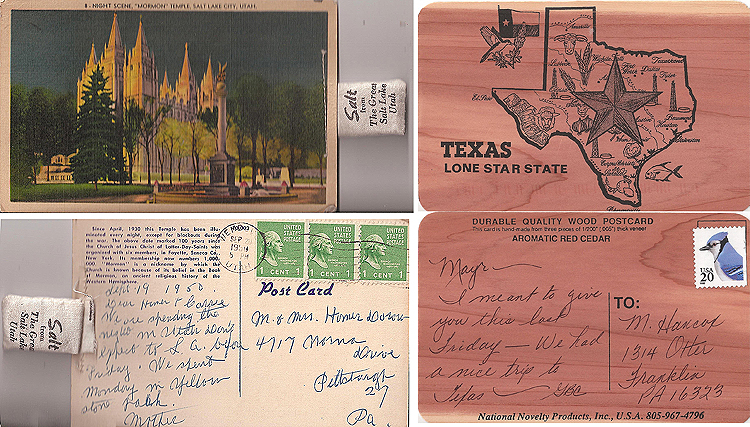 8 - NIGHT SCENE, "MORMON" TEMPLE, SALT LAKE CITY, UTAH.
Salt
from
The Great
Salt Lake
Utah
TEXAS
LONE STAR STATE
El Paso
Since April, 1930 this Temple has been illu-
minated every night, except for blackouts during
the war. The above date marked 100 years since
the Church of Jesus Christ of Latter-Day-Saints was
organized with six members, in Fayette, Seneca Co.,
New York. Its membership now numbers 1,000,-
000. "Mormon" is a nickname by which the
Church is known because of its belief in the Book
of Mormon, an ancient religious history of the
Western Hemisphere.
Sept 19 1950.
Dear Homer & Carrie
We are spending the
night in Utah. Don't
expect to L.A. before
Friday. We spent
Monday in Yellow
stone Park.
Mother
Salt
from
The Great
Salt Lake
Utah
SEP
UTAH
UNITED STATES POSTAGE
1 CENT 1
UNITED STATES POSTAGE
1 CENT 1
UNITED STATES POSTAGE
1 CENT 1
Post Card
Mr & Mrs. Homer
4717 Norma
Drive
Pittsburgh
27
Pa.
DURABLE QUALITY WOOD POSTCARD
This card is hand-made from three pieces of 1/200" (.005") thick veneer
AROMATIC RED CEDAR
USA
20
I meant to give
you this last
Friday — We had
a nice trip to
Texas —
TO:
M. Hancox
1314 Otter
Franklin
PA 16323
National Novelty Products, Inc., U.S.A. 805-967-4796